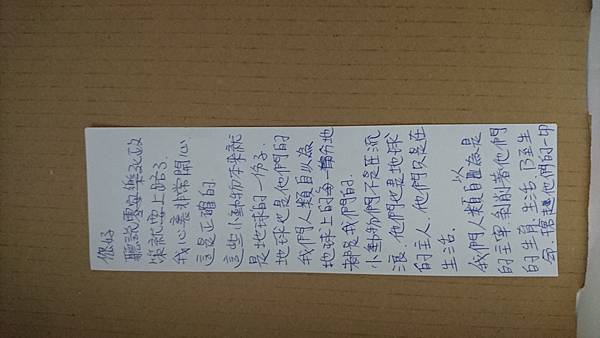 你好
聽說零安樂死政
策就要上路了.
我心裏非常開心
這是正確的.
這些小動物本來就
是地球的一份子.
地球也是他們的
我們人類自以為
地球上的每一部份地
都是我們的.
小動物們不是在流
浪.他們也是地球
的主人.他們只是在
生活.
我們人類自以為是
的主宰剝削著他們
的生育.生活乃至生
命.搶走他們的一切